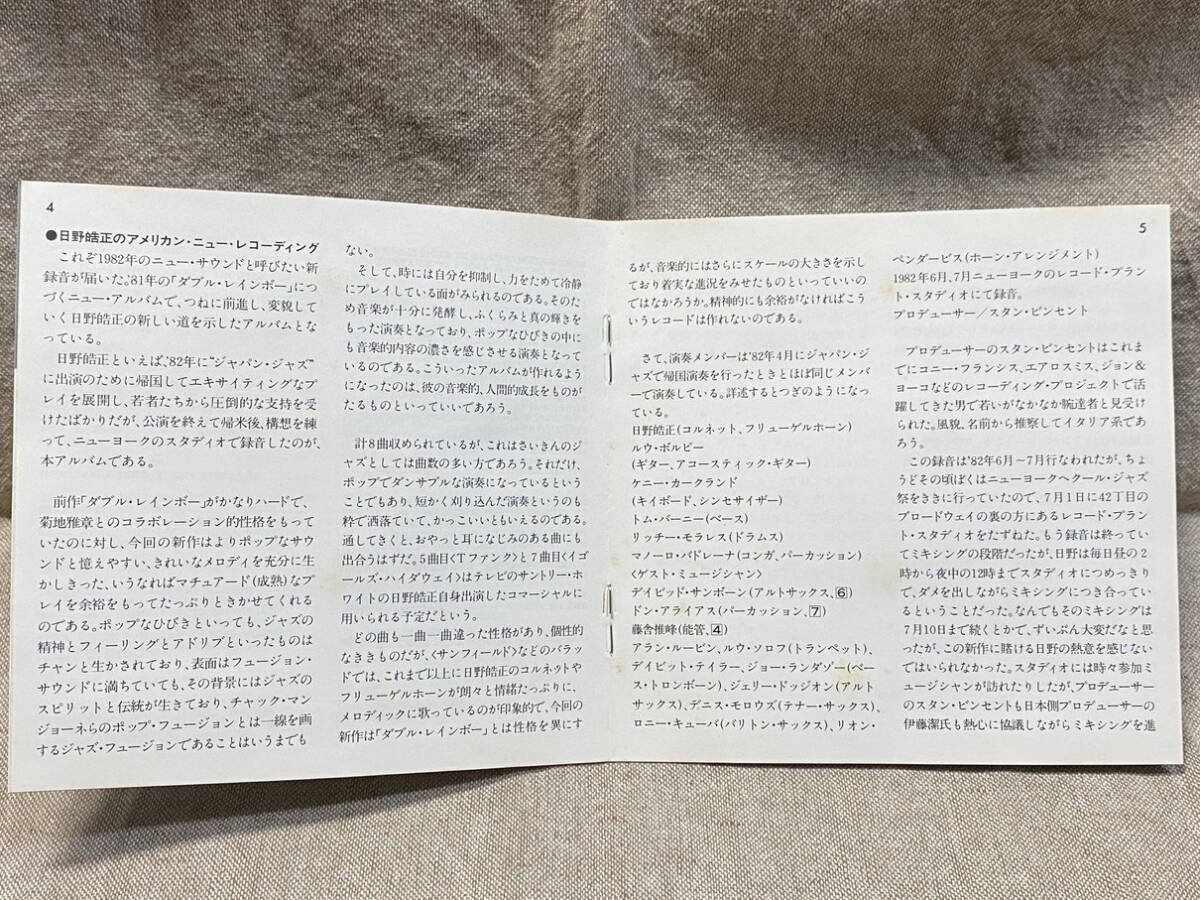 4
●日野皓正のアメリカン・ニュー・レコーディング
これぞ1982年のニュー・サウンドと呼びたい新
録音が届いた。'81年の「ダブル・レインボー」につ
づくニュー・アルバムで、つねに前進し、変貌して
いく日野皓正の新しい道を示したアルバムとな
っている。
日野皓正といえば、'82年に“ジャパン・ジャズ”
に出演のために帰国してエキサイティングなプ
レイを展開し、若者たちから圧倒的な支持を受
けたばかりだが、公演を終えて帰米後、構想を練
って、ニューヨークのスタジオで録音したのが、
本アルバムである。
前作「ダブル・レインボー」がかなりハードで、
菊地雅章とのコラボレーション的性格をもって
いたのに対し、今回の新作はよりポップなサウ
ンドと憶えやすい、きれいなメロディを充分に生
かしきった、いうなればマチュアード(成熟)なプ
レイを余裕をもってたっぷりときかせてくれる
のである。ポップなひびきといっても、ジャズの
精神とフィーリングとアドリブといったものは
チャンと生かされており、表面はフュージョン・
サウンドに満ちていても、その背景にはジャズの
スピリットと伝統が生きており、チャック・マン
ジョーネらのポップ・フュージョンとは一線を画
するジャズ・フュージョンであることはいうまでも
ない。
そして、時には自分を抑制し、力をためて冷静
にプレイしている面がみられるのである。そのた
め音楽が十分に発酵し、ふくらみと真の輝きを
もった演奏となっており、ポップなひびきの中に
も音楽的内容の濃さを感じさせる演奏となって
いるのである。こういったアルバムが作れるよう
になったのは、彼の音楽的、人間的成長をものが
たるものといっていいであろう。
計8曲収められているが、これはさいきんのジ
ャズとしては曲数の多い方であろう。それだけ、
ポップでダンサブルな演奏になっているという
ことでもあり、短かく刈り込んだ演奏というのも
粋で洒落ていて、かっこいいともいえるのである。
通してきくと、おやっと耳になじみのある曲にも
出合うはずだ。5曲目〈Tファンク〉と7曲目〈イゴ
ールズ・ハイダウェイ〉はテレビのサントリー・ホ
ワイトの日野皓正自身出演したコマーシャルに
用いられる予定だという。
どの曲も一曲一曲違った性格があり、個性的
なききものだが、〈サンフィールド〉などのバラッ
ドでは、これまで以上に日野皓正のコルネットや
フリューゲルホーンが朗々と情緒たっぷりに、
メロディックに歌っているのが印象的で、今回の
新作は「ダブル・レインボー」とは性格を異にす
5
るが、音楽的にはさらにスケールの大きさを示し
ており着実な進況をみせたものといっていいの
ではなかろうか。精神的にも余裕がなければこう
いうレコードは作れないのである。
さて、演奏メンバーは'82年4月にジャパン・ジ
ャズで帰国演奏を行ったときとほぼ同じメンバ
ーで演奏している。詳述するとつぎのようになっ
ている。
日野皓正(コルネット、フリューゲルホーン)
ルウ・ボルピー
(ギター、アコースティック・ギター)
ケニー・カークランド
(キイボード、シンセサイザー)
トム・バーニー(ベース)
リッチー・モラレス(ドラムス)
マノーロ・バドレーナ(コンガ、パーカッション)
〈ゲスト・ミュージシャン〉
デイビッド・サンボーン(アルトサックス、6)
ドン・アライアス(パーカッション、7)
藤舎推峰(能管、4)
アラン・ルービン、ルウ・ソロフ(トランペット)、
デイビット・テイラー、ジョー・ランダゾー(ベー
ス・トロンボーン)、ジェリー・ドッジオン(アルト
サックス)、デニス・モロウズ(テナー・サックス)、
ロニー・キューバ(バリトン・サックス)、リオン・
ペンダービス(ホーン・アレンジメント)
1982年6月、7月ニューヨークのレコード・プラン
ト・スタディオにて録音。
プロデューサー/スタン・ビンセント
プロデューサーのスタン・ビンセントはこれま
でにコニー・フランシス、エアロスミス、ジョン&
ヨーコなどのレコーディング・プロジェクトで活
躍してきた男で若いがなかなか腕達者と見受け
られた。風貌、名前から推察してイタリア系であ
ろう。
この録音は'82年6月～7月行なわれたが、ちょ
うどその頃ぼくはニューヨークへクール・ジャズ
祭をききに行っていたので、7月1日に42丁目の
ブロードウェイの裏の方にあるレコード・プラン
ト・スタディオをたずねた。もう録音は終っていて
ミキシングの段階だったが、日野は毎日昼の2
時から夜中の12時までスタディオにつめっきり
で、ダメを出しながらミキシングにつき合ってい
るということだった。なんでもそのミキシングは
7月10日まで続くとかで、ずいぶん大変だなと思
ったが、この新作に賭ける日野の熱意を感じない
ではいられなかった。スタディオには時々参加ミ
ュージシャンが訪れたりしたが、プロデューサー
のスタン・ビンセントも日本側プロデューサーの
伊藤潔氏も熱心に協議しながらミキシングを進